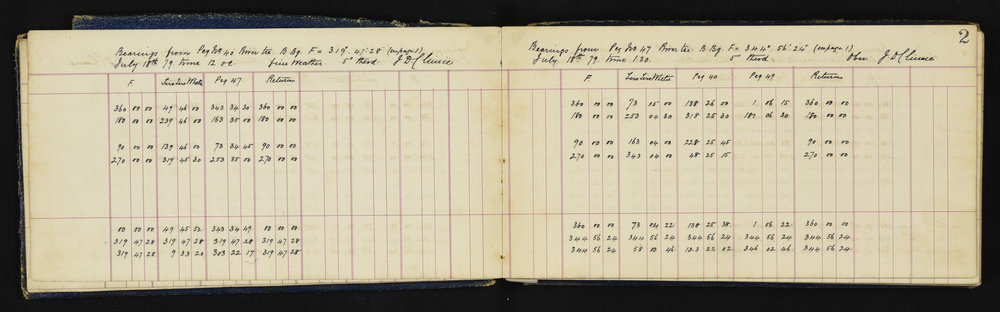 Bearings from Peg No 40 River tee B. Bg. F = 319° 47' 28" (on page 1)
July 18th 79 time 12 oc fine Weather 5" theod. J D Climie
F. Peg 47 Returns
360 00 00 49 46 00 343 34 30 360 00 00
180 00 00 239 46 00 163 35 00 180 00 00
90 00 00 139 46 00 73 34 45 90 00 00
270 00 00 319 45 30 253 35 00 270 00 00
00 00 00 49 45 52 343 34 49 00 00 00
319 47 28 319 47 28 319 47 28 319 47 28
319 47 28 9 33 20 303 22 17 319 47 28
2
Bearings from Peg No 47 River tee B. Bg. F = 344° 56' 24" (on page 1)
July 18th 79 time 1.30. 5" theod Obsr. J D Climie
F Peg 40 Peg 49 Returns
360 00 00 73 05 00 138 26 00 1 06 15 360 00 00
180 00 00 253 04 30 318 25 30 181 06 30 180 00 00
90 00 00 163 04 00 228 25 45 90 00 00
270 00 00 343 04 00 48 25 15 270 00 00
360 00 00 73 04 22 138 25 38 1 06 22 360 00 00
344 56 24 344 56 24 344 56 24 344 56 24 344 56 24
344 56 24 58 00 46 123 22 02 346 02 46 344 56 24